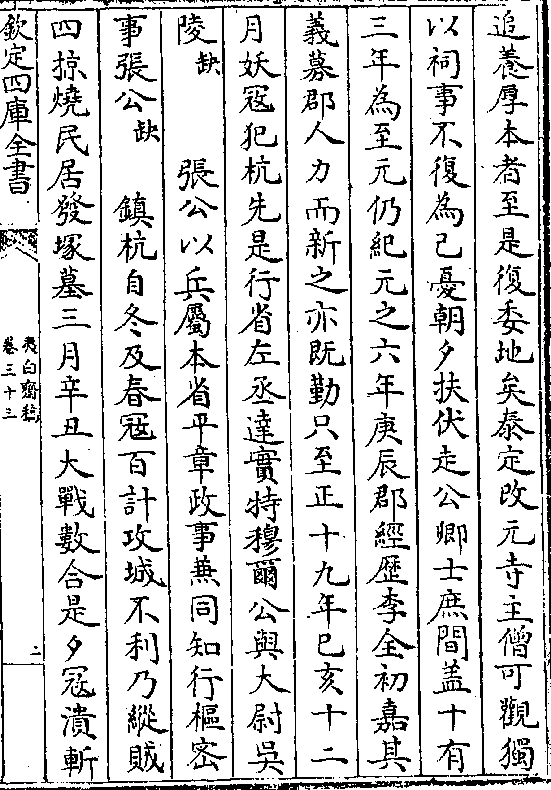 追養厚本者至是復委地矣泰定改元寺主僧可觀獨
以祠事不復為己憂朝夕扶伏走公卿士庶間盖十有
三年為至元仍紀元之六年庚辰郡經歷李全初嘉其
義募郡人力而新之亦既勤只至正十九年己亥十二
月妖冦犯杭先是行省左丞達實特穆爾公與大尉吳
陵缺　　張公以兵屬本省平章政事兼同知行樞密
事張公缺　　鎮杭自冬及春冦百計攻城不利乃縱賊
四掠燒民居發塚墓三月辛丑大戰數合是夕冦潰斬
欽定四庫全書
夷白齋稿
卷三十三
二